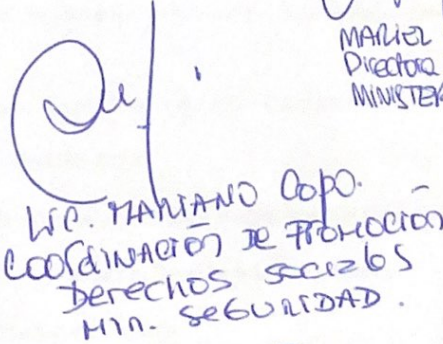 MARIEL
Directora
MINISTER
LIC. MARIANO COPO.
COORDINACIÓN DE PROMOCIÓN
Derechos sociales
Min. SEGURIDAD.